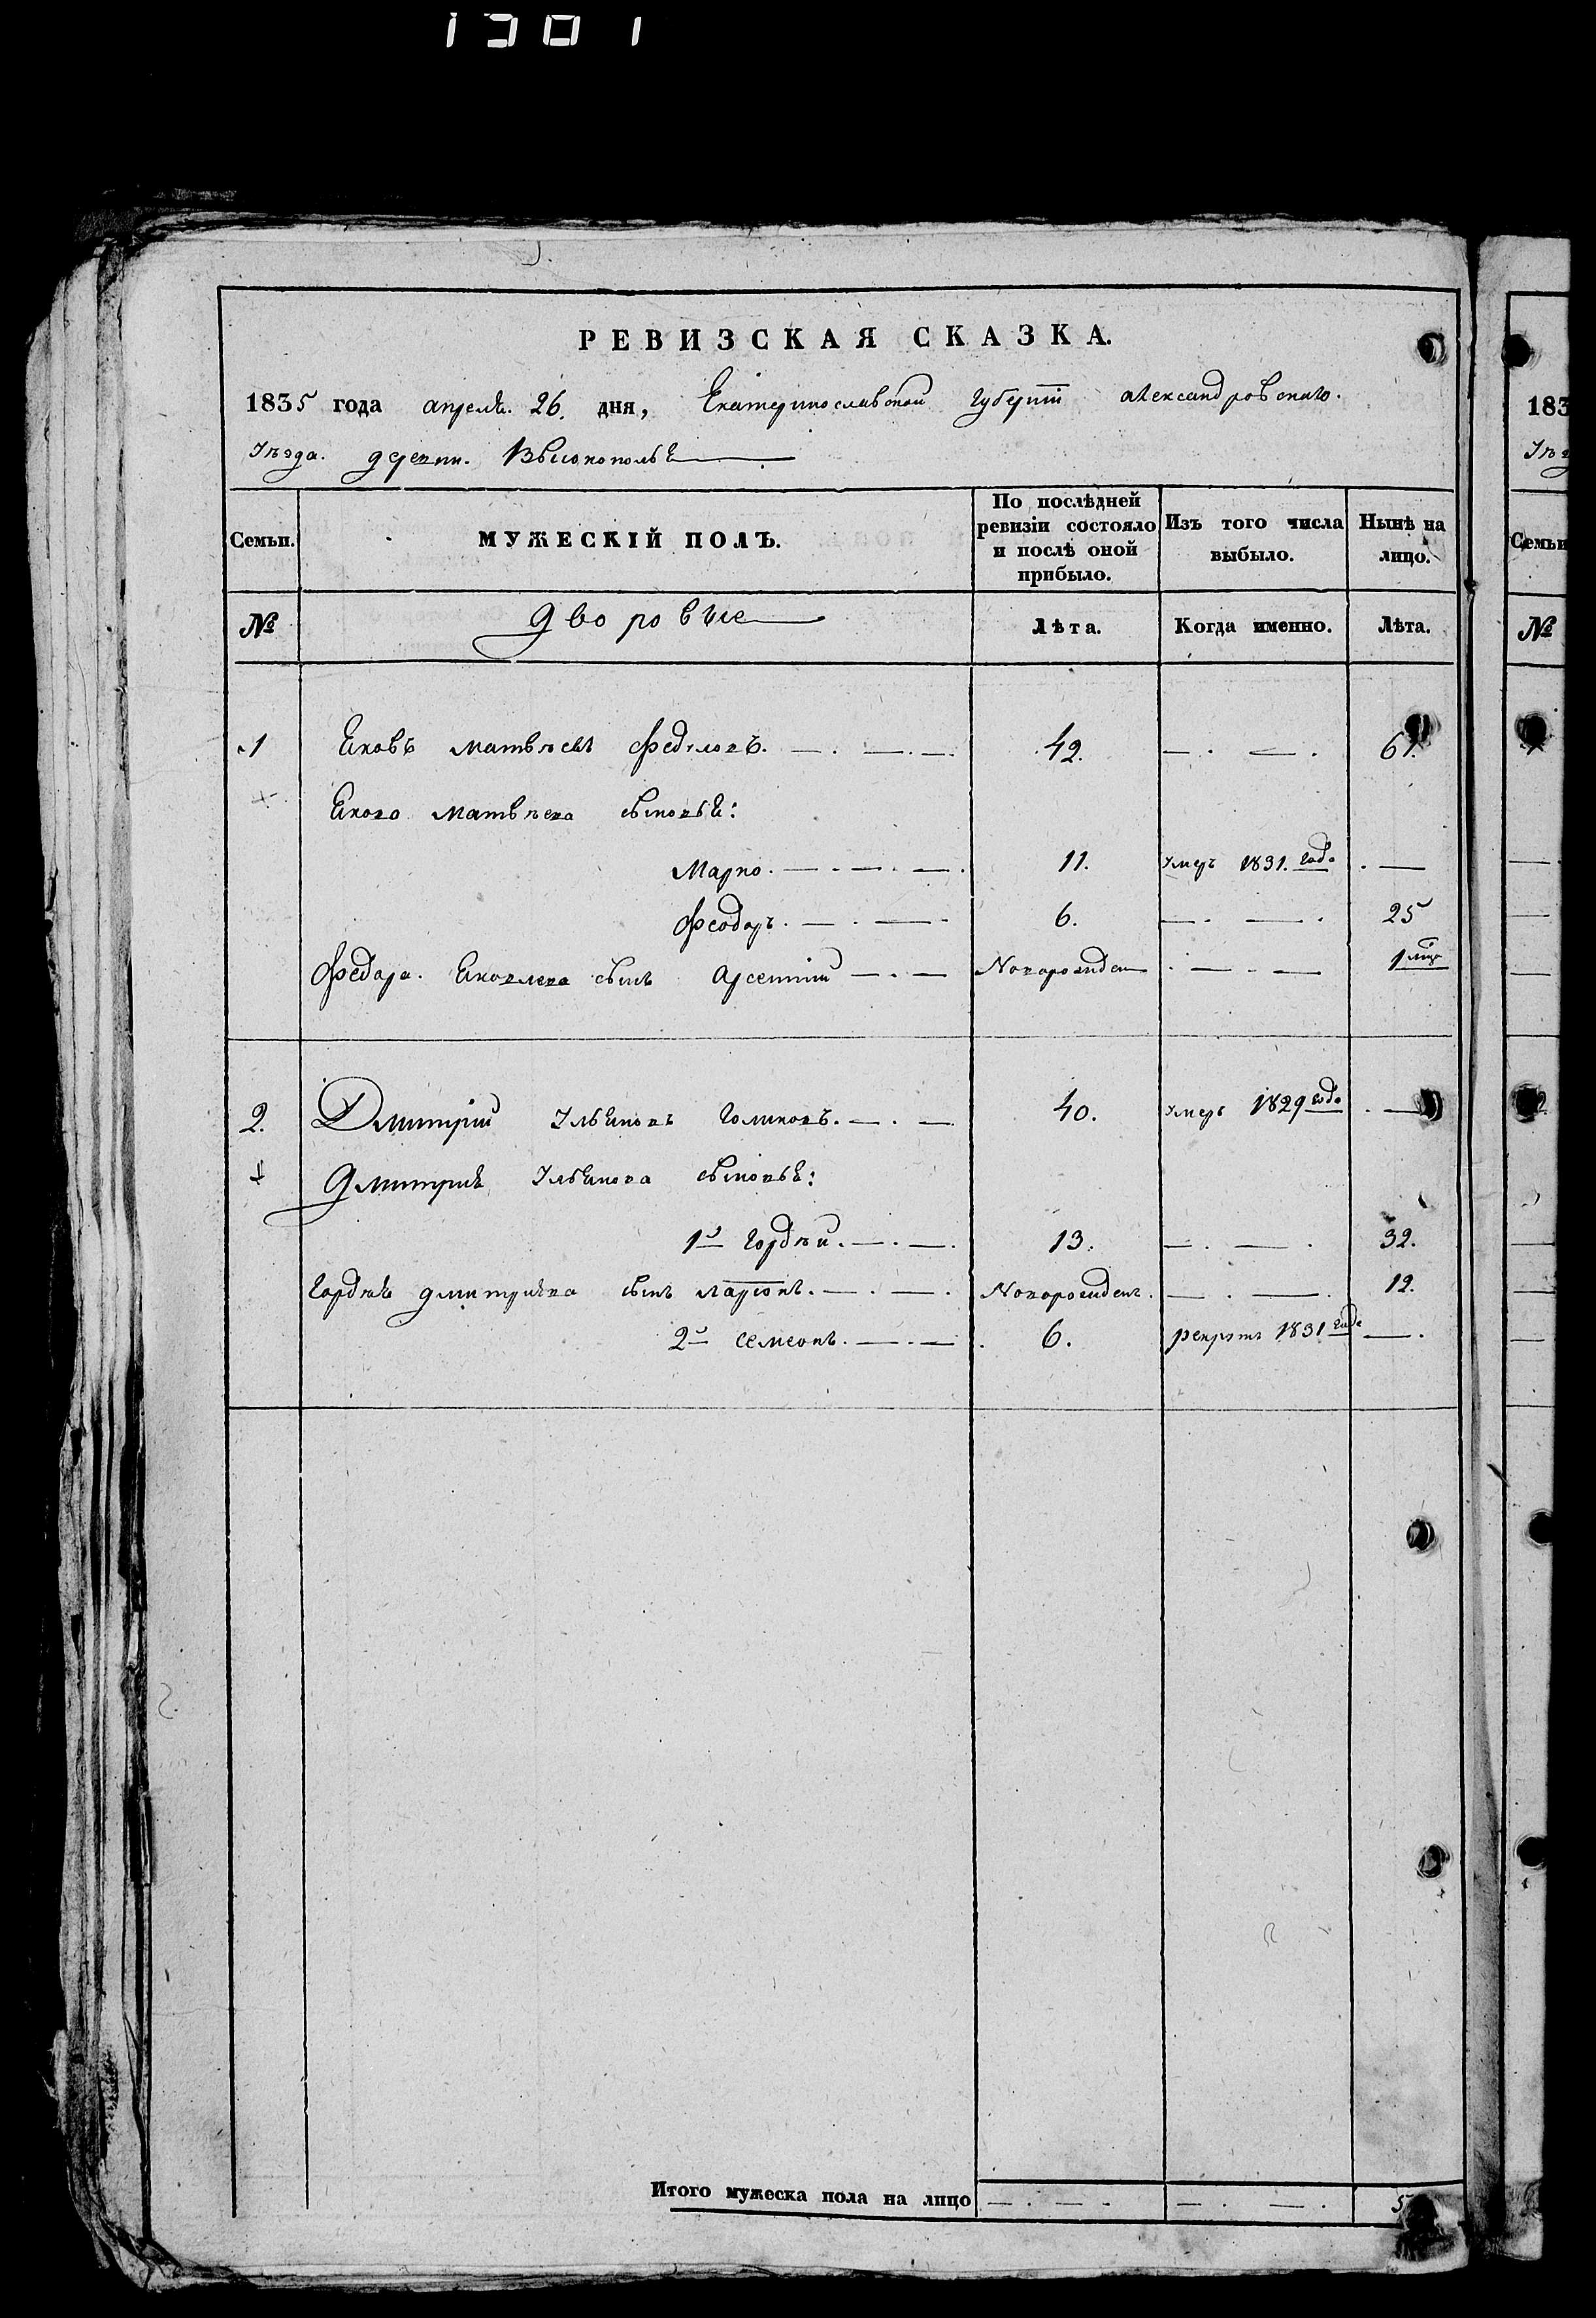 1301
РЕВИЗСКАЯ СКАЗКА.
1835 года апреля. 26. дня, Екатеринославской Губерніи александровскаго.
Уѣзда. деревни. Высокополья
Семьи. МУЖЕСКІЙ ПОЛЪ. По послѣдней ревизіи состояло и послѣ оной прибыло. Изъ того числа выбыло. Нынѣ на лицо.
№ дворовые Лѣта. Когда именно. Лѣта.
1 Яковъ матвѣевъ 42. 61.
Якова матвѣева сыновья:
Марко. 11. умеръ 1831. года
Феодоръ. 6. 25
Федора. Яковлева сынъ Арсентій Новорожден
2. Дмитрій Ульяновъ Голиковъ. 40. умеръ 1829 года
Дмитрия Ульянова сыновья:
1й Гордѣй. 13. 32.
Гордѣя дмитриева сынъ ларіонъ. Новорожденъ. 12.
2й семеонъ. 6. рекрутъ 1831 года
Итого мужеска пола на лицо 5
183
Семьи
№